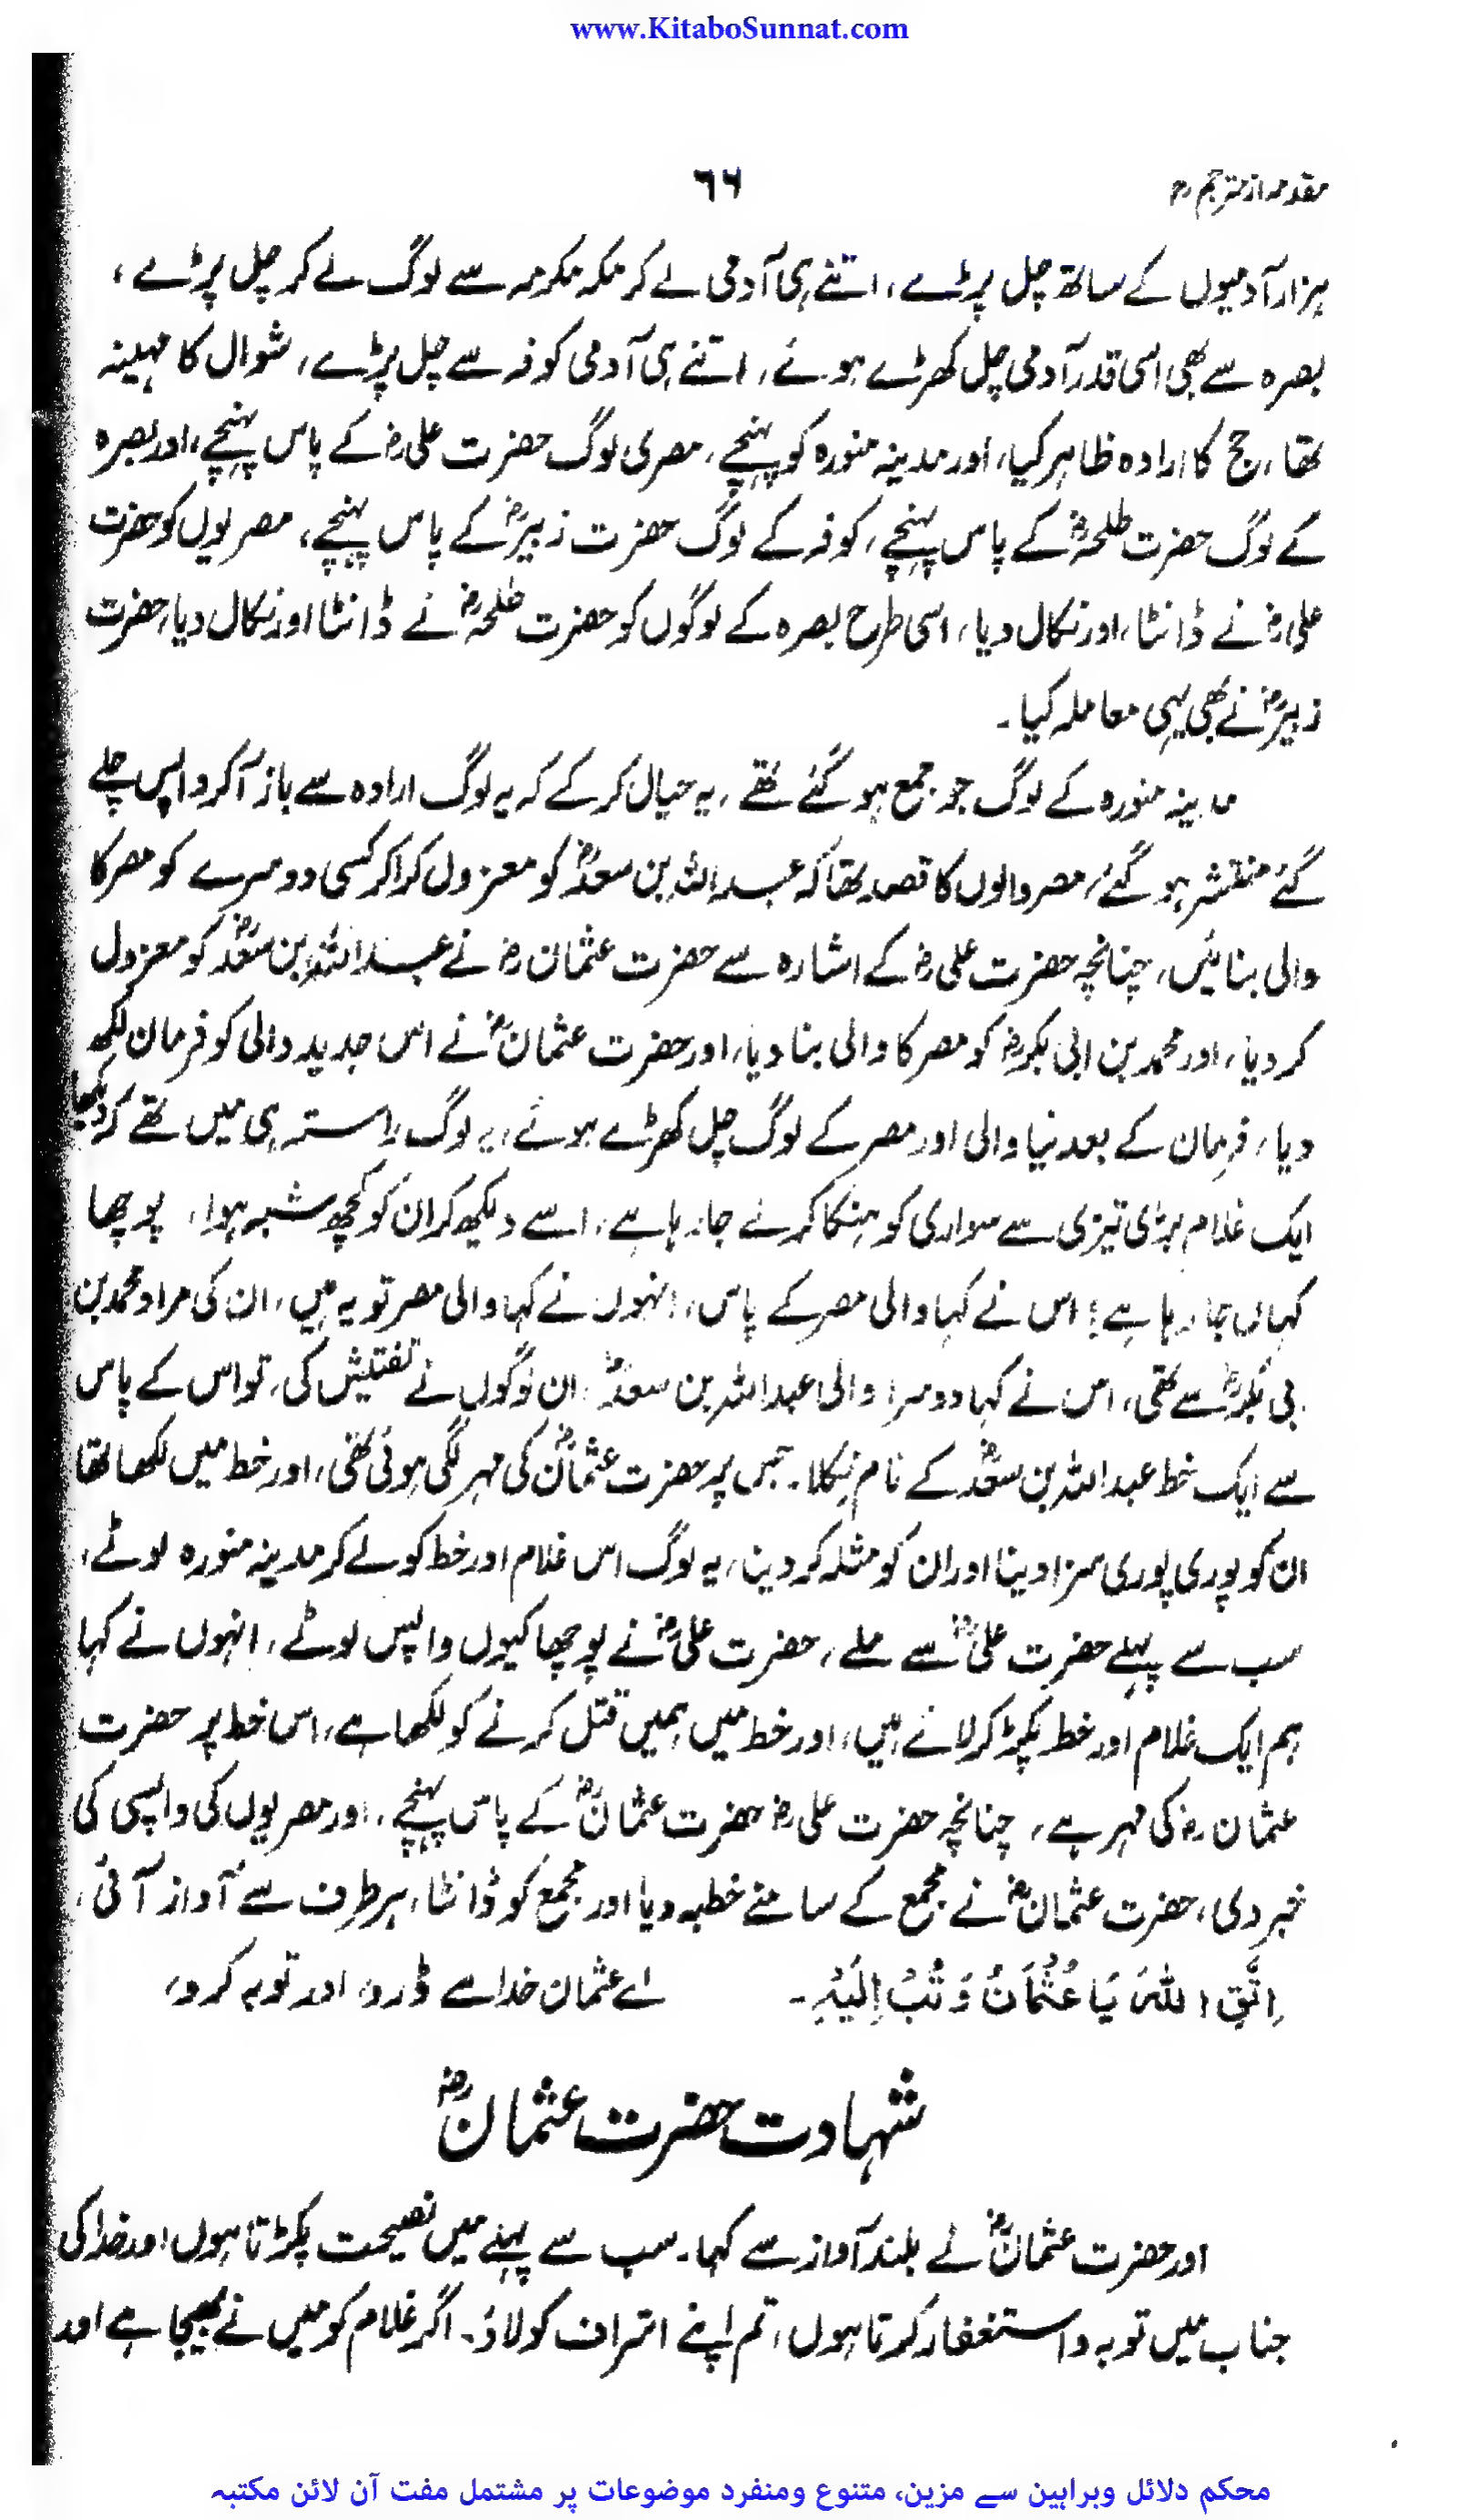 www.KitaboSunnat.com
مقدمہ از مترجم رح
٦٦
ہزار آدمیوں کے ساتھ چل پڑے، اتنے ہی آدمی لے کر مکہ مکرمہ سے لوگ لے کر چل پڑے،
بصرہ سے بھی اسی قدر آدمی چل کھڑے ہوئے، اتنے ہی آدمی کوفہ سے چل پڑے، شوال کا مہینہ
تھا، حج کا ارادہ ظاہر کیا، اور مدینہ منورہ کو پہنچے، مصری لوگ حضرت علی رض کے پاس پہنچے، اور بصرہ
کے لوگ حضرت طلحہ رض کے پاس پہنچے، کوفہ کے لوگ حضرت زبیر رض کے پاس پہنچے، مصریوں کو حضرت
علی رض نے ڈانٹا، اور نکال دیا، اسی طرح بصرہ کے لوگوں کو حضرت طلحہ رض نے ڈانٹا اور نکال دیا، حضرت
زبیر رض نے بھی یہی معاملہ کیا۔
مدینہ منورہ کے لوگ جو جمع ہو گئے تھے، یہ خیال کر کے کہ یہ لوگ ارادہ سے باز آکر واپس چلے
گئے منتشر ہو گئے، مصر والوں کا قصد تھا کہ عبداللہ بن سعد رض کو معزول کرا کر کسی دوسرے کو مصر کا
والی بنائیں، چنانچہ حضرت علی رض کے اشارہ سے حضرت عثمان رض نے عبداللہ بن سعد رض کو معزول
کر دیا، اور محمد بن ابی بکر رض کو مصر کا والی بنا دیا، اور حضرت عثمان رض نے اس جدید والی کو فرمان لکھ
دیا، فرمان کے بعد نیا والی اور مصر کے لوگ چل کھڑے ہوئے، یہ لوگ راستہ ہی میں تھے کہ دیکھا
ایک غلام بڑی تیزی سے سواری کو ہنکا کرلے جا رہا ہے، اسے دیکھ کر ان کو کچھ شبہ ہوا، پوچھا
کہاں جا رہا ہے؟ اس نے کہا والی مصر کے پاس، انہوں نے کہا والی مصر تو یہ ہیں، ان کی مراد محمد بن
بی بکر رض سے تھی، اس نے کہا دوسرا والی عبداللہ بن سعد رض، ان لوگوں نے تفتیش کی، تو اس کے پاس
سے ایک خط عبداللہ بن سعد رض کے نام نکلا۔ جس پر حضرت عثمان رض کی مہر لگی ہوئی تھی، اور خط میں لکھا تھا
ان کو پوری پوری سزا دینا اور ان کو مثلہ کر دینا، یہ لوگ اس غلام اور خط کو لے کر مدینہ منورہ لوٹے،
سب سے پہلے حضرت علی رض سے ملے، حضرت علی رض نے پوچھا کیوں واپس لوٹے، انہوں نے کہا
ہم ایک غلام اور خط پکڑ کر لائے ہیں، اور خط میں ہمیں قتل کرنے کو لکھا ہے، اس خط پر حضرت
عثمان رض کی مہر ہے، چنانچہ حضرت علی رض حضرت عثمان رض کے پاس پہنچے، اور مصریوں کی واپسی کی
خبر دی، حضرت عثمان رض نے مجمع کے سامنے خطبہ دیا اور مجمع کو ڈانٹا، ہر طرف سے آواز آئی،
اِتَّقِ اللہَ یَا عُثْمَانُ وَتُبْ اِلَیْہِ۔ اے عثمان خدا سے ڈرو، اور توبہ کرو،
شہادت حضرت عثمان رض
اور حضرت عثمان رض نے بلند آواز سے کہا۔ سب سے پہلے میں نصیحت پکڑتا ہوں اور خدا کی
جناب میں توبہ و استغفار کرتا ہوں، تم اپنے اشراف کو لاؤ۔ اگر غلام کو میں نے بھیجا ہے اور
محکم دلائل وبراہین سے مزین، متنوع ومنفرد موضوعات پر مشتمل مفت آن لائن مکتبہ